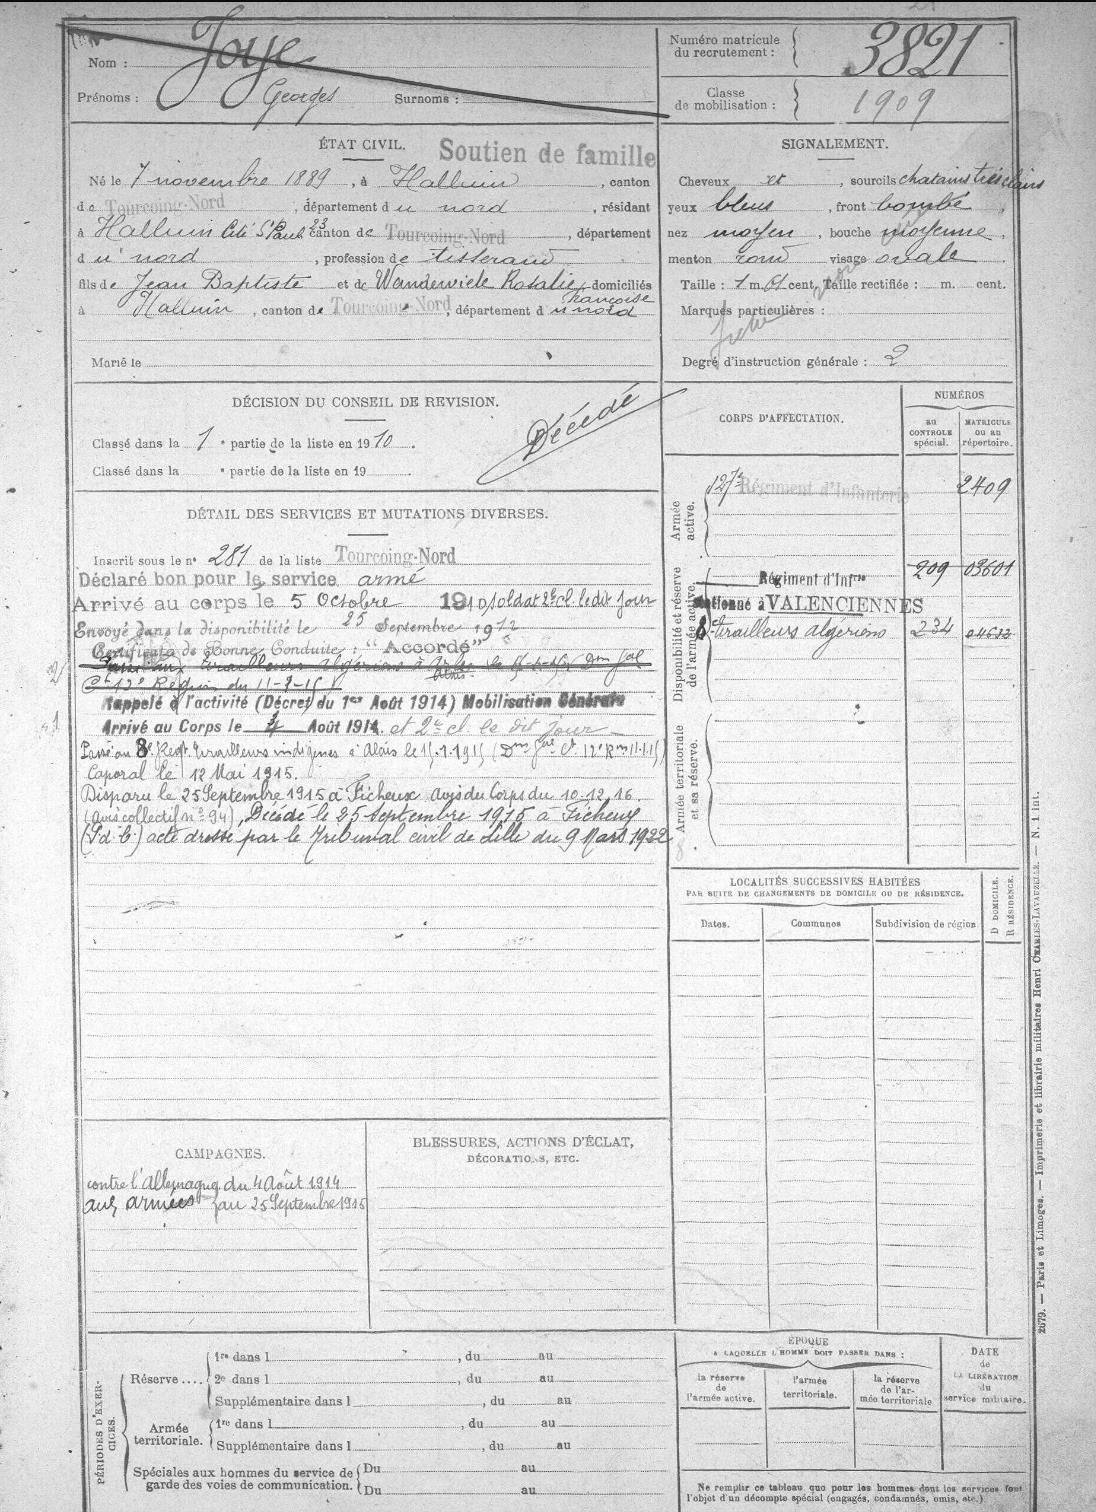 Nom : Joye
Prénoms : Georges Surnoms :
Numéro matricule du recrutement : 3821
Classe de mobilisation : 1909
ÉTAT CIVIL. Soutien de famille
Né le 7 novembre 1889, à Halluin, canton
de Tourcoing-Nord, département du nord, résidant
à Halluin Cité St Paul 23 canton de Tourcoing-Nord, département
du nord, profession de tisserand
fils de Jean Baptiste et de Wanderviele Rosalie Françoise domiciliés
à Halluin, canton de Tourcoing-Nord, département du nord
Marié le
SIGNALEMENT.
Cheveux et, sourcils chatains très clairs
yeux bleus, front bombé,
nez moyen, bouche moyenne,
menton rond visage ovale
Taille : 1 m. 61 cent. Taille rectifiée : m. cent.
Marques particulières :
Degré d'instruction générale : 2
DÉCISION DU CONSEIL DE REVISION.
Classé dans la 1e partie de la liste en 1910.
Classé dans la e partie de la liste en 19
Décédé
DÉTAIL DES SERVICES ET MUTATIONS DIVERSES.
Inscrit sous le no 281 de la liste Tourcoing-Nord
Déclaré bon pour le service armé
Arrivé au corps le 5 Octobre 1910, soldat 2e cl. le dit jour
Envoyé dans la disponibilité le 25 Septembre 1912
Certificat de Bonne Conduite : "Accordé"
Passé aux tirailleurs algériens à
Ct 12e Région du 11-1-15
Rappelé à l'activité (Décret du 1er Août 1914) Mobilisation Générale
Arrivé au Corps le 4 Août 1914. et 2e cl. le dit jour
Passé au 8e Régt. tirailleurs indigènes à Alais le 15.1.1915 (Don Gal Ct 12e Ron 11.1.15)
Caporal le 12 Mai 1915.
Disparu le 25 Septembre 1915 à Ficheux avis du Corps du 10.12.16.
(avis collectif no 94), Décédé le 25 Septembre 1915 à Ficheux
(P. d. C.) acte dressé par le Tribunal civil de Lille du 9 Mars 1922
CORPS D'AFFECTATION.
NUMÉROS
au CONTROLE spécial.
MATRICULE OU AU répertoire.
Armée active.
127e Régiment d'Infanterie 2409
Disponibilité et réserve de l'armée active.
Régiment d'Infrie 209 03601
stationné à VALENCIENNES
8e tirailleurs algériens 234 04632
Armée territoriale et sa réserve.
LOCALITÉS SUCCESSIVES HABITÉES
PAR SUITE DE CHANGEMENTS DE DOMICILE OU DE RÉSIDENCE.
Dates. Communes Subdivision de région
D DOMICILE. R RÉSIDENCE.
CAMPAGNES.
contre l'Allemagne du 4 Août 1914
aux armées au 25 Septembre 1915
BLESSURES, ACTIONS D'ÉCLAT,
DÉCORATIONS, ETC.
PÉRIODES D'EXERCICES.
Réserve ....
1re dans l , du au
2e dans l , du au
Supplémentaire dans l , du au
Armée territoriale.
1re dans l , du au
Supplémentaire dans l , du au
Spéciales aux hommes du service de garde des voies de communication.
Du au
Du au
ÉPOQUE
A LAQUELLE L'HOMME DOIT PASSER DANS :
la réserve de l'armée active.
l'armée territoriale.
la réserve de l'armée territoriale
DATE de LA LIBÉRATION du service militaire.
Ne remplir ce tableau que pour les hommes dont les services font
l'objet d'un décompte spécial (engagés, condamnés, omis, etc.)
2679. — Paris et Limoges. — Imprimerie et librairie militaires Henri CHARLES-LAVAUZELLE. — N. 1 int.